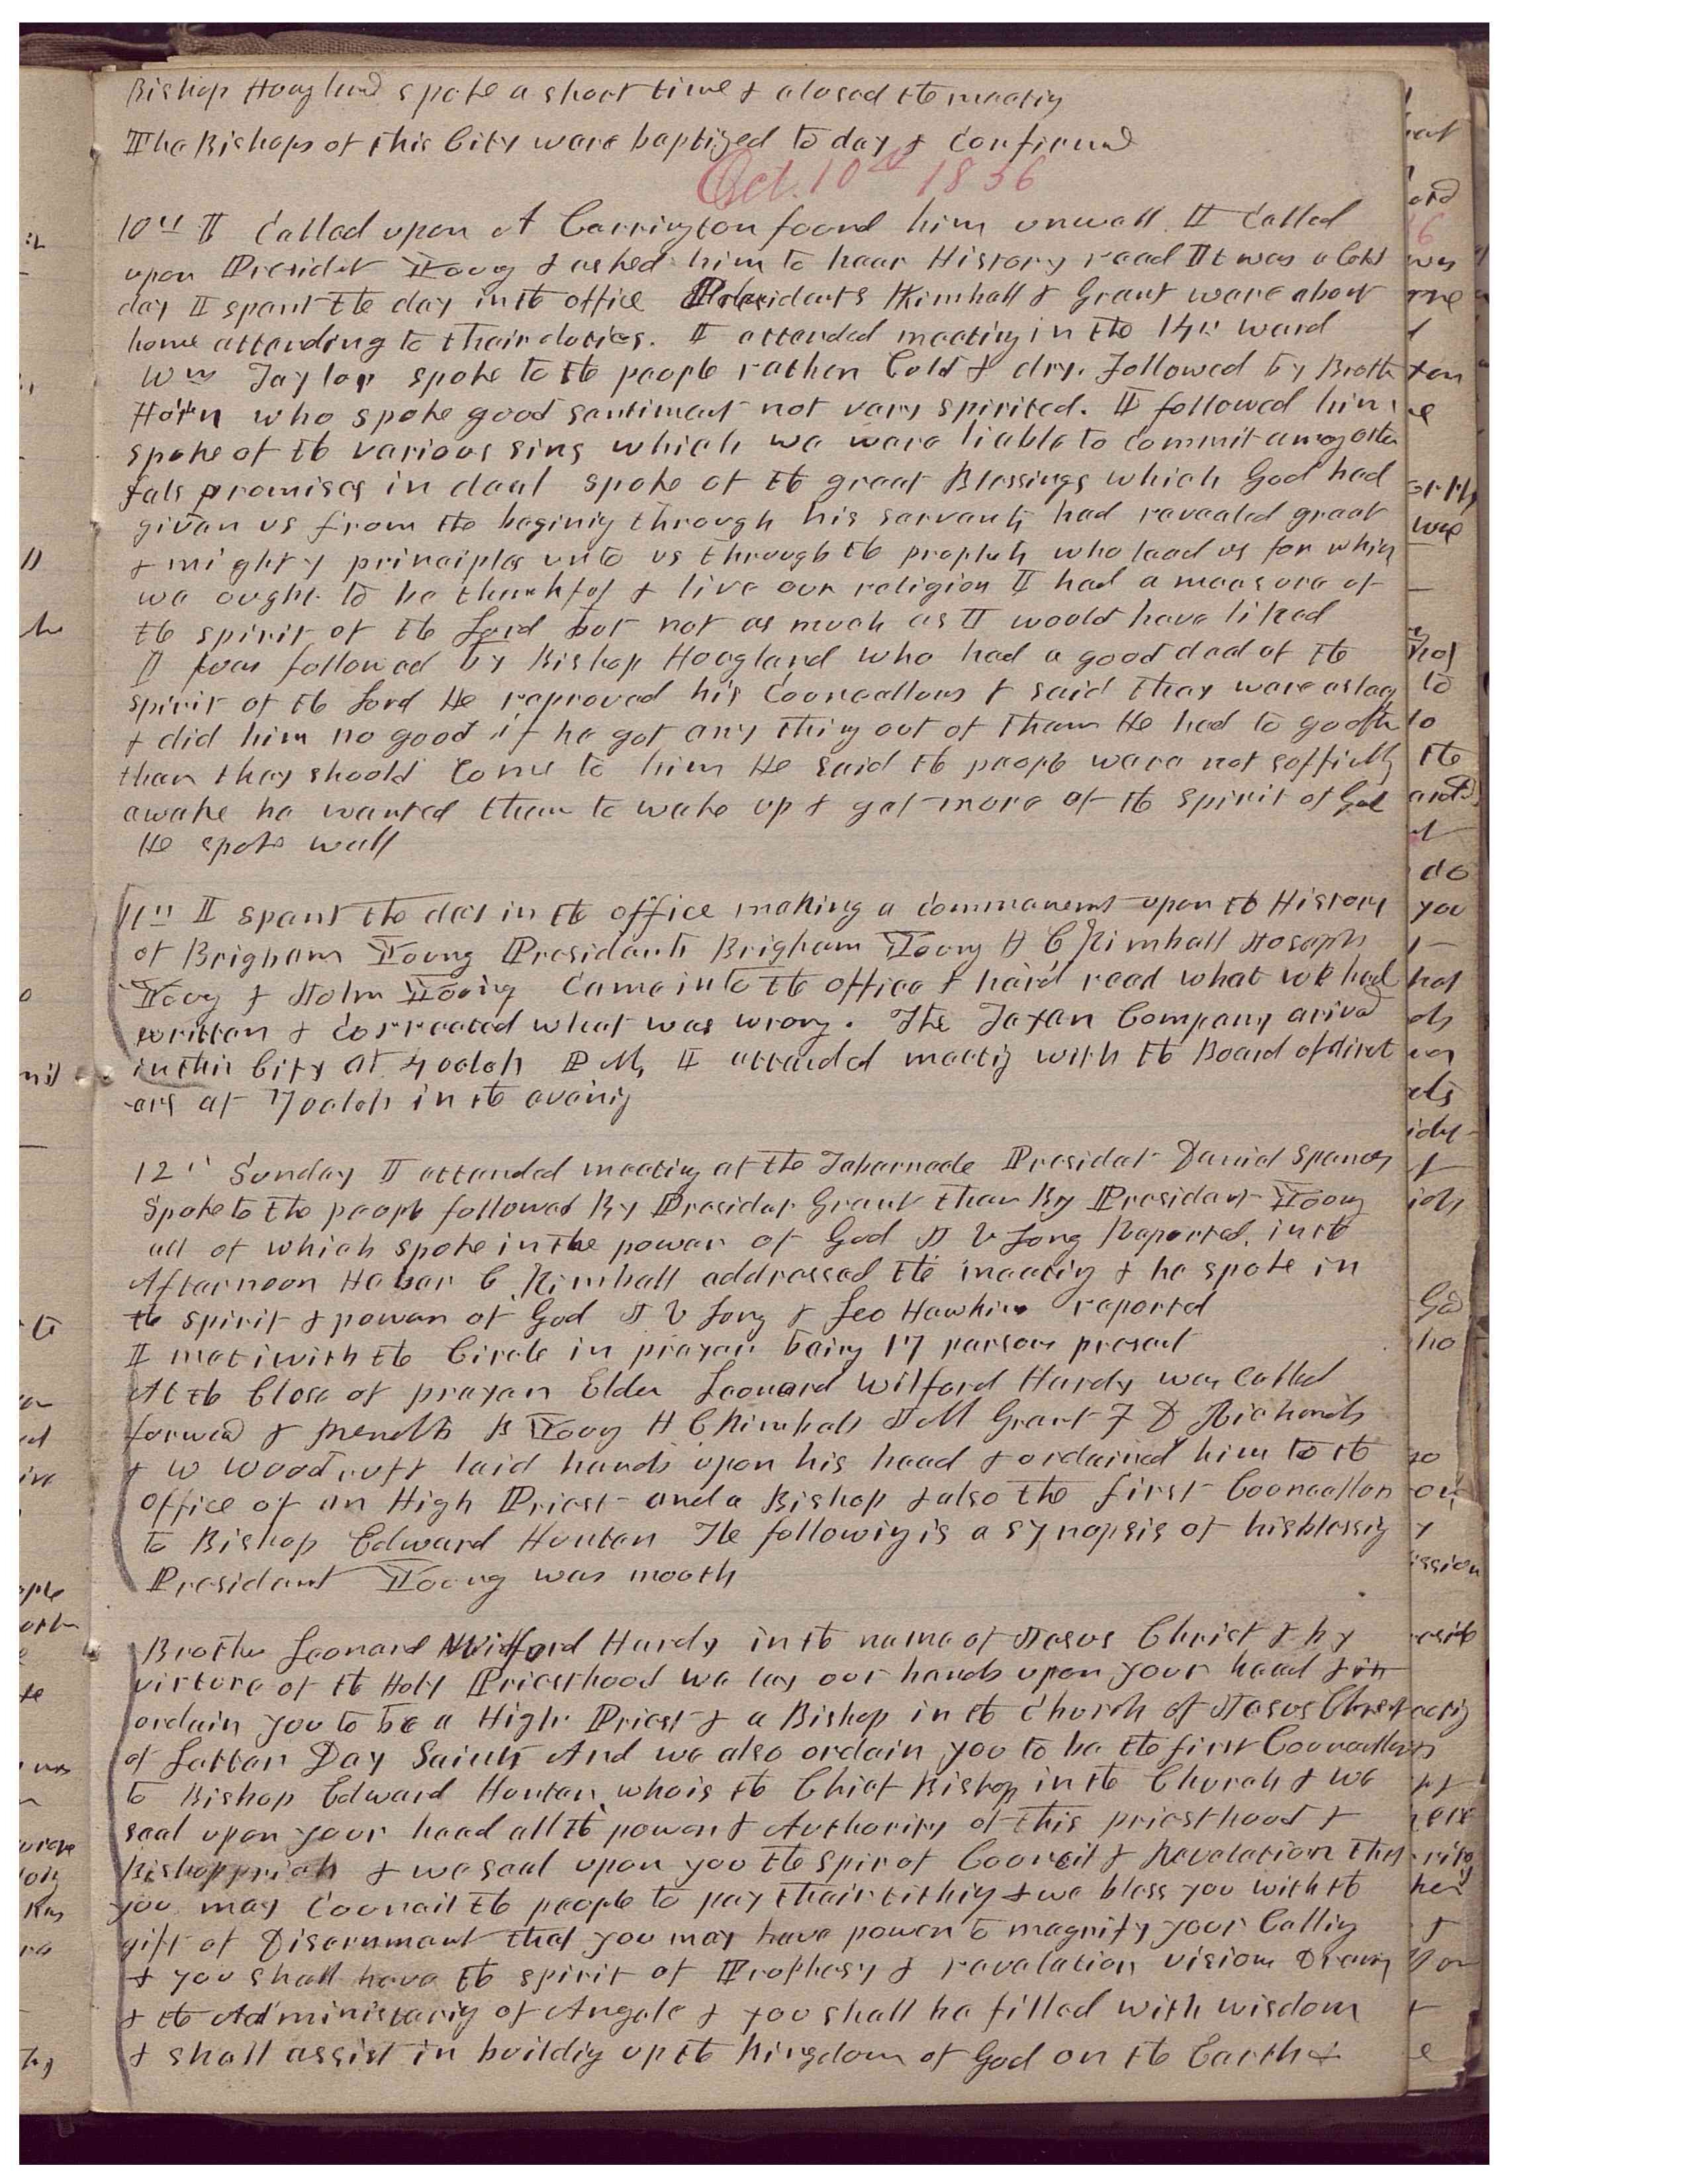 Bishop Hoagland spoke a short time & closed the meeting
The Bishops of this City were baptized to day & Confirmed
Oct. 10th 1856
10th I Called upon A Carrington found him unwell. I Called
upon Presidet Young & asked him to hear History read It was a Cold
day I spent the day in the office Presidents Kimball & Grant were about
home attending to their duties. I attended meeting in the 14th ward
Wm Taylor spoke to the people rather Cold & dry. followed by Broth
Horn who spoke good sentiment not very spirited. I followed him
spoke of the various sins which we were liable to Commit among other
fals promises in deal spoke of the great Blessings which God had
given us from the begining through his servants had revealed great
& mighty principles unto us through the prophets who lead us for which
we ought to be thankful & live our religion I had a measure of
the spirit of the Lord but not as much as I would have liked
I was followed by Bishop Hoagland who had a good deal of the
spirit of the Lord He reproved his Councellors & said they were as lag
& did him no good if he got any thing out of them He had to go after
then they should Come to him He said the people were not sufficitly
awake he wanted them to wake up & get more of the spirit of God
He spoke well
11th I spent the day in the office making a Commencment upon the History
of Brigham Young Presidents Brigham Young H C Kimball Joseph
Young & John Young Came into the office & heard read what we had
written & Corrected what was wrong. The Texan Company arived
in this City at 4 oclok P M, I attended meeting with the Board of direct
-ors at 7 oclok in the evening
12th Sunday I attended meeting at the Tabernacle Presidet Daniel Spencer
Spoke to the people followed By Presidet Grant then By President Young
all of which spoke in the power of God J V Long Reported. in the
Afternoon Heber C Kimball addressed the meeting & he spoke in
the spirit & power of God J V Long & Leo Hawkins reported
I met with the Circle in prayer being 17 persons present
At the Close of prayer Elder Leonard Wilford Hardy was Called
forward & Presidts B Young H C Kimball J M Grant F D Richards
& W Woodruff laid hands upon his head & ordained him to the
office of an High Priest and a Bishop & also the first Councellor
to Bishop Edward Hunter The following is a synopsis of his blessing
President Young was mouth
Brother Leonard Wilford Hardy in the name of Jesus Christ & by
virture of the Holy Priesthood we lay our hands upon your head & in
ordain you to be a High Priest & a Bishop in the Church of Jesus Christ
of Latter Day Saints And we also ordain you to be the first Councellor
to Bishop Edward Hunter, who is the Chief Bishop in the Church & we
seal upon your head all the power & Authority of this priesthood &
Bishopprick & we seal upon you the Spirit of Council & Revelation that
you may Council the people to pay their tithing & we bless you with the
gift of Disernment that you may have power to magnify your Calling
& you shall have the spirit of Prophesy & revelation visions Dreams
& the Administering of Angels & you shall be filled with wisdom
& shall assist in building up the Kingdom of God on the Earth &